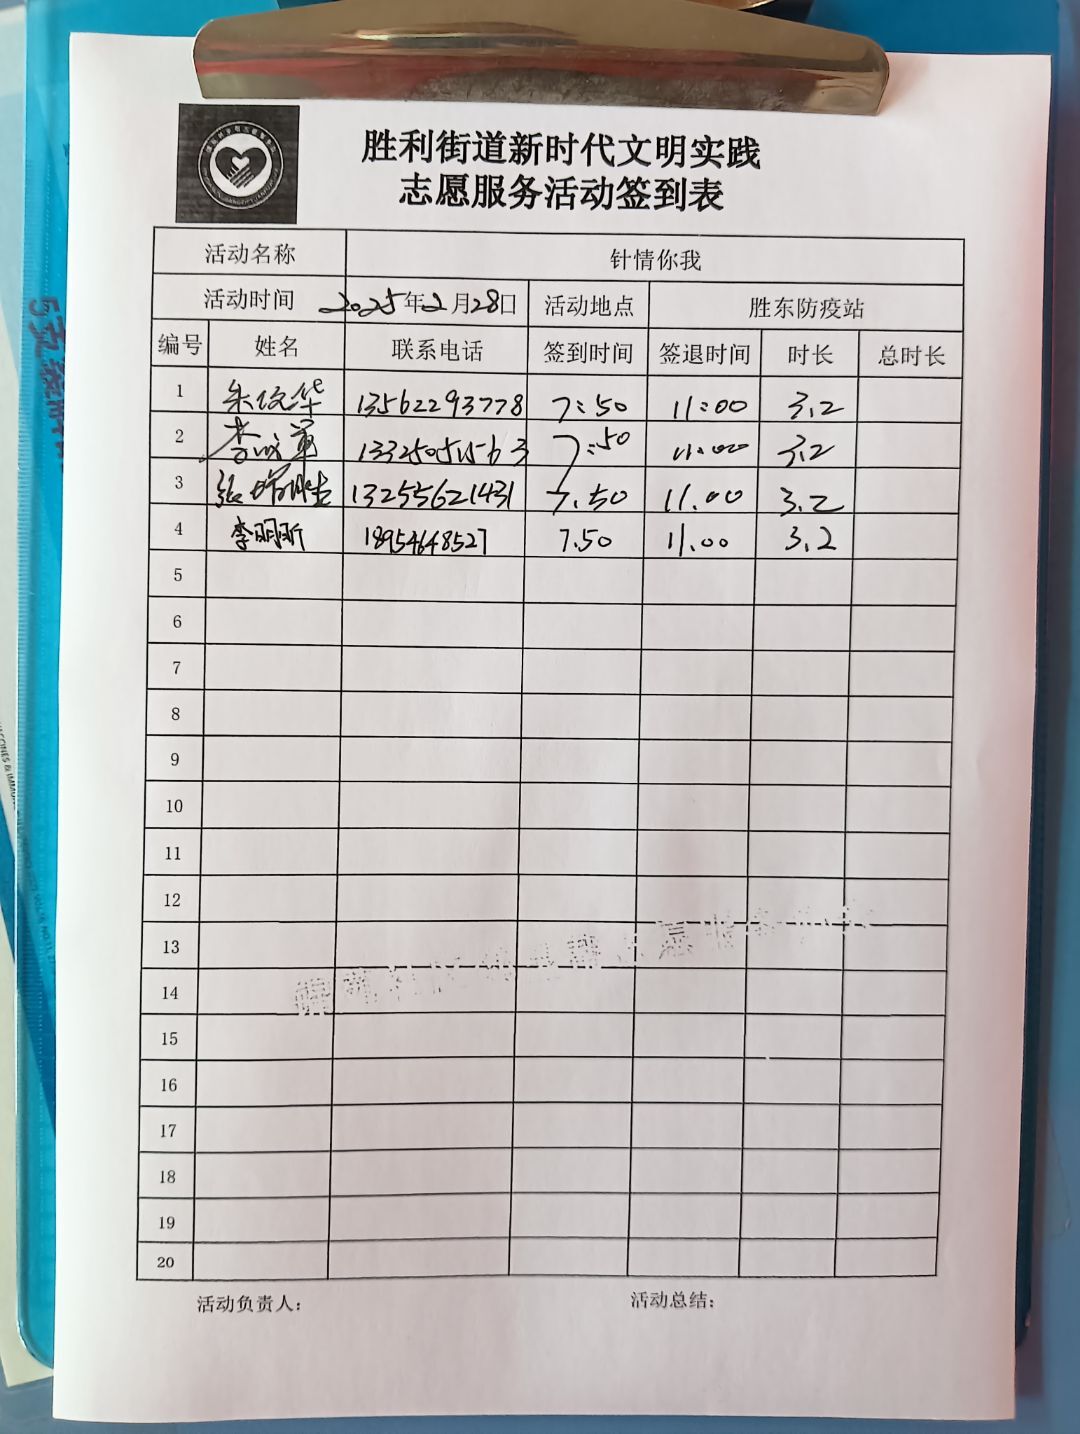 胜利街道新时代文明实践
志愿服务活动签到表
活动名称 针情你我
活动时间 2025年2月28日 活动地点 胜东防疫站
编号 姓名 联系电话 签到时间 签退时间 时长 总时长
1 朱俊华 13562293778 7:50 11:00 3.2
2 李成军 13325051563 7:50 11:00 3.2
3 张 13255621431 7.50 11.00 3.2
4 李明昕 18954648527 7.50 11.00 3.2
5
6
7
8
9
10
11
12
13
14
15
16
17
18
19
20
活动负责人： 活动总结：